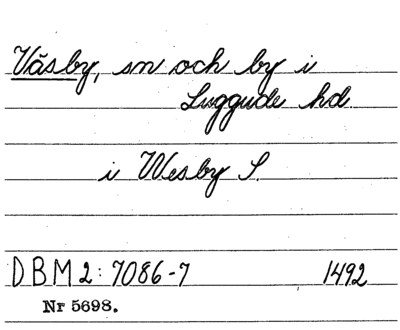 Väsby, sn och by i
Luggude hd.
i Wesby S.
DBM 2: 7086-7 1492
Nr 5698.